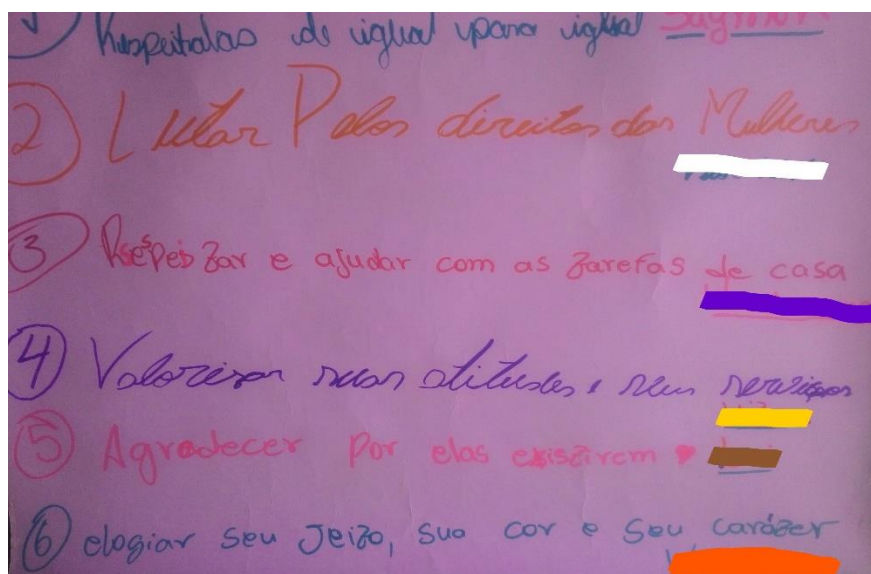 1 Respeitalas de igual para igual
2 Lutar Pelos direitos das Mulheres
3 Respeitar e ajudar com as tarefas de casa
4 Valorizar suas atitudes e seus serviços
5 Agradecer por elas existirem
6 elogiar seu Jeito, sua cor e seu caráter